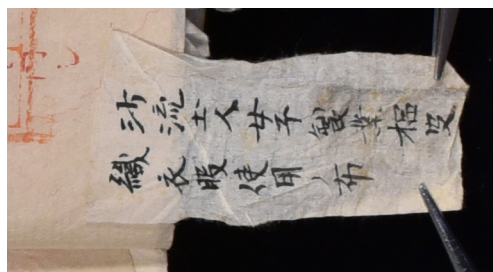 沙流土人女子製業樞皮
織衣服使用ノ布